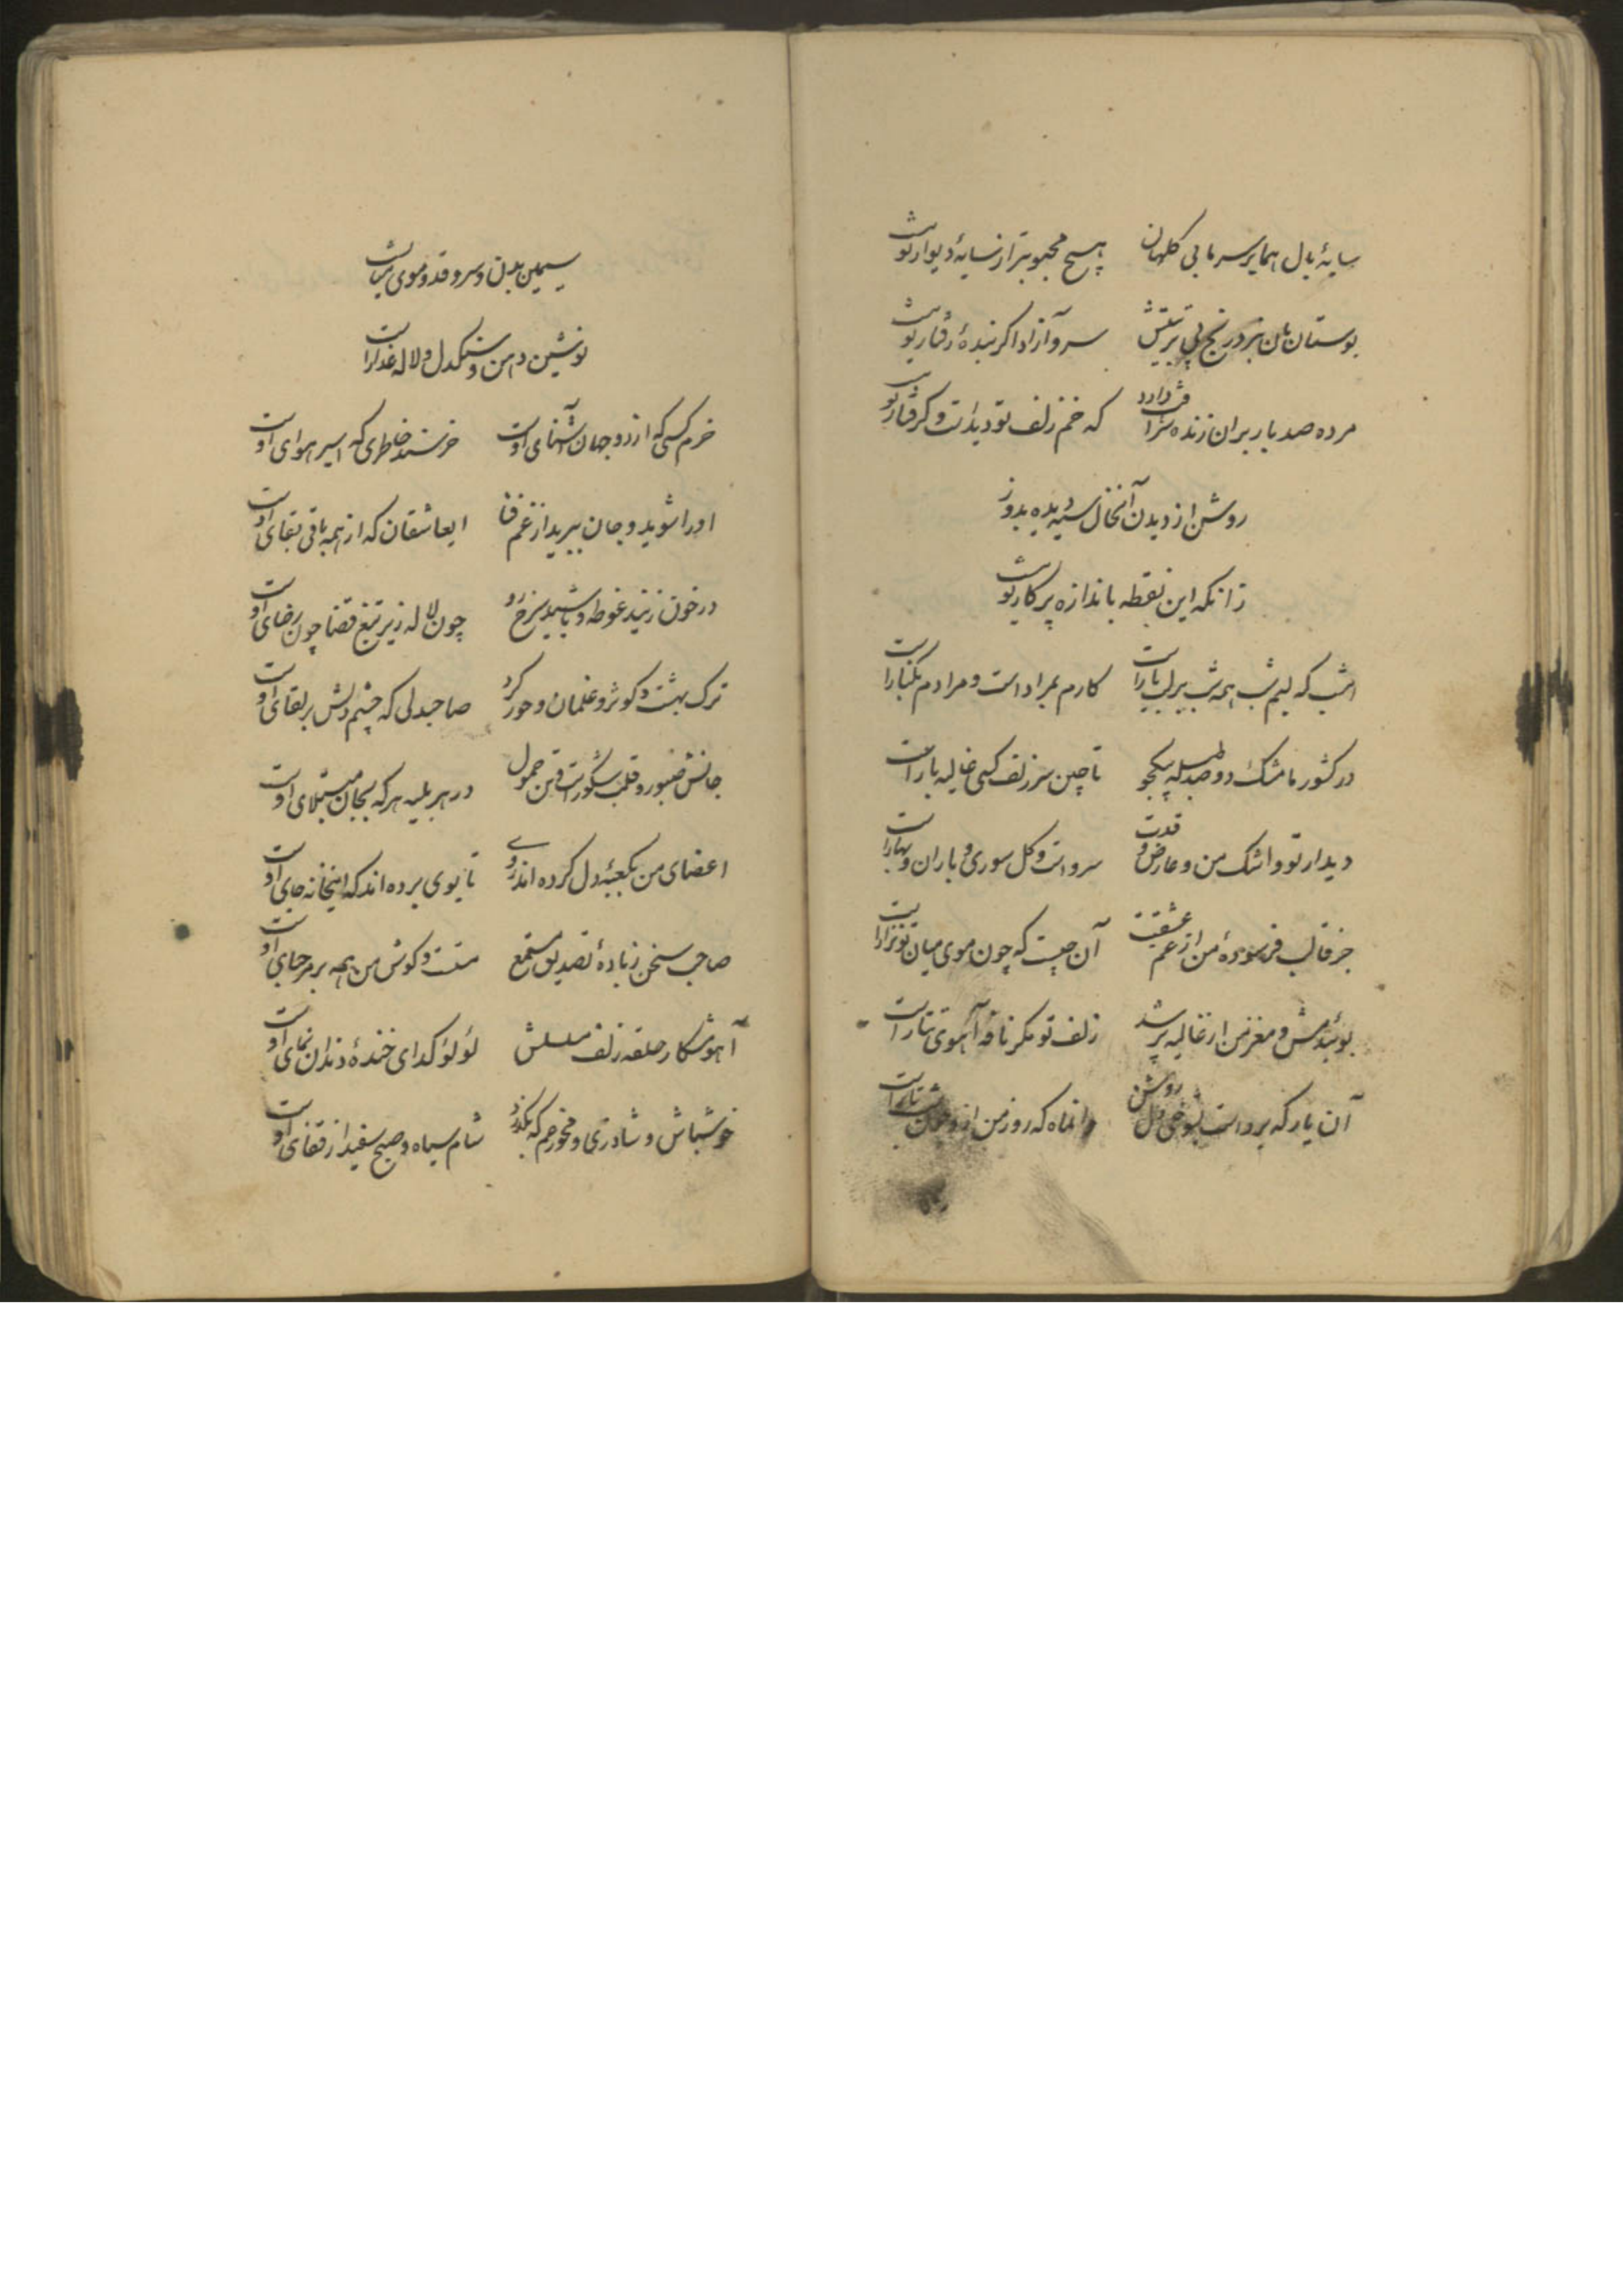 سایهٔ بال هما بر سر ما بی کلهان هیچ محبوبتر از سایهٔ دیوار تو نیست
بوستان بان نبرد رنج پی تربیتش سرو آزاد اگر بندهٔ رفتار تو نیست
مرده صد بار بران زنده شرافت دارد که خم زلف تو دیدست و گرفتار تو نیست
روشن از دیدن آنخال سیه دیده بدوز
زانکه این نقطه باندازه پرکار تو نیست
امشب که لبم شب همه شب بر لب یار است کارم بمراد است و مرادم بکنار است
در کشور ما مشک دو صد طبله بیکجو تا چین سر زلف کسی غالیه بار است
دیدار تو و اشک من و عارض و قدت سرو است و گل سوری و باران و بهار است
جز قالب فرسودهٔ من از غم عشقت آن چیست که چون موی میان تو نزار است
بوئیدمش و مغز من از غالیه پر شد زلف تو مگر نافهٔ آهوی تتار است
آن یار که برداست بشوخی دل روشن وانماه که روز من ازو چون شب تار است
سیمین بدن و سرو قد و موی میانست
نوشین دهن و سنگدل و لاله عذار است
خرم کسی که از دو جهان آشنای اوست خرسند خاطری که اسیر هوای اوست
او را شوید و جان ببرید از غم فنا ایعاشقان که از همه باقی بقای اوست
در خون زنید غوطه و باشید سرخ رو چون لاله زیر تیغ قضا چون رضای اوست
ترک بهشت و کوثر و غلمان و حور کرد صاحبدلی که چشم دلش بر لقای اوست
جانش صبور و قلب شکور است و تن حمول در هر بلیه هر که بجان مبتلای اوست
اعضای من بکعبهٔ دل کرده اند روی تا بوی برده اند که اینخانه جای اوست
صاحب سخن زیادهٔ تصدیق مستمع منست و گوش من همه بر مرحبای اوست
آهو شکار حلقه زلف مسلسلش لؤلؤ گدای خندهٔ دندان نمای اوست
خوشباش و شاد زی و مخور غم که بگذرد شام سیاه و صبح سفید از قفای اوست